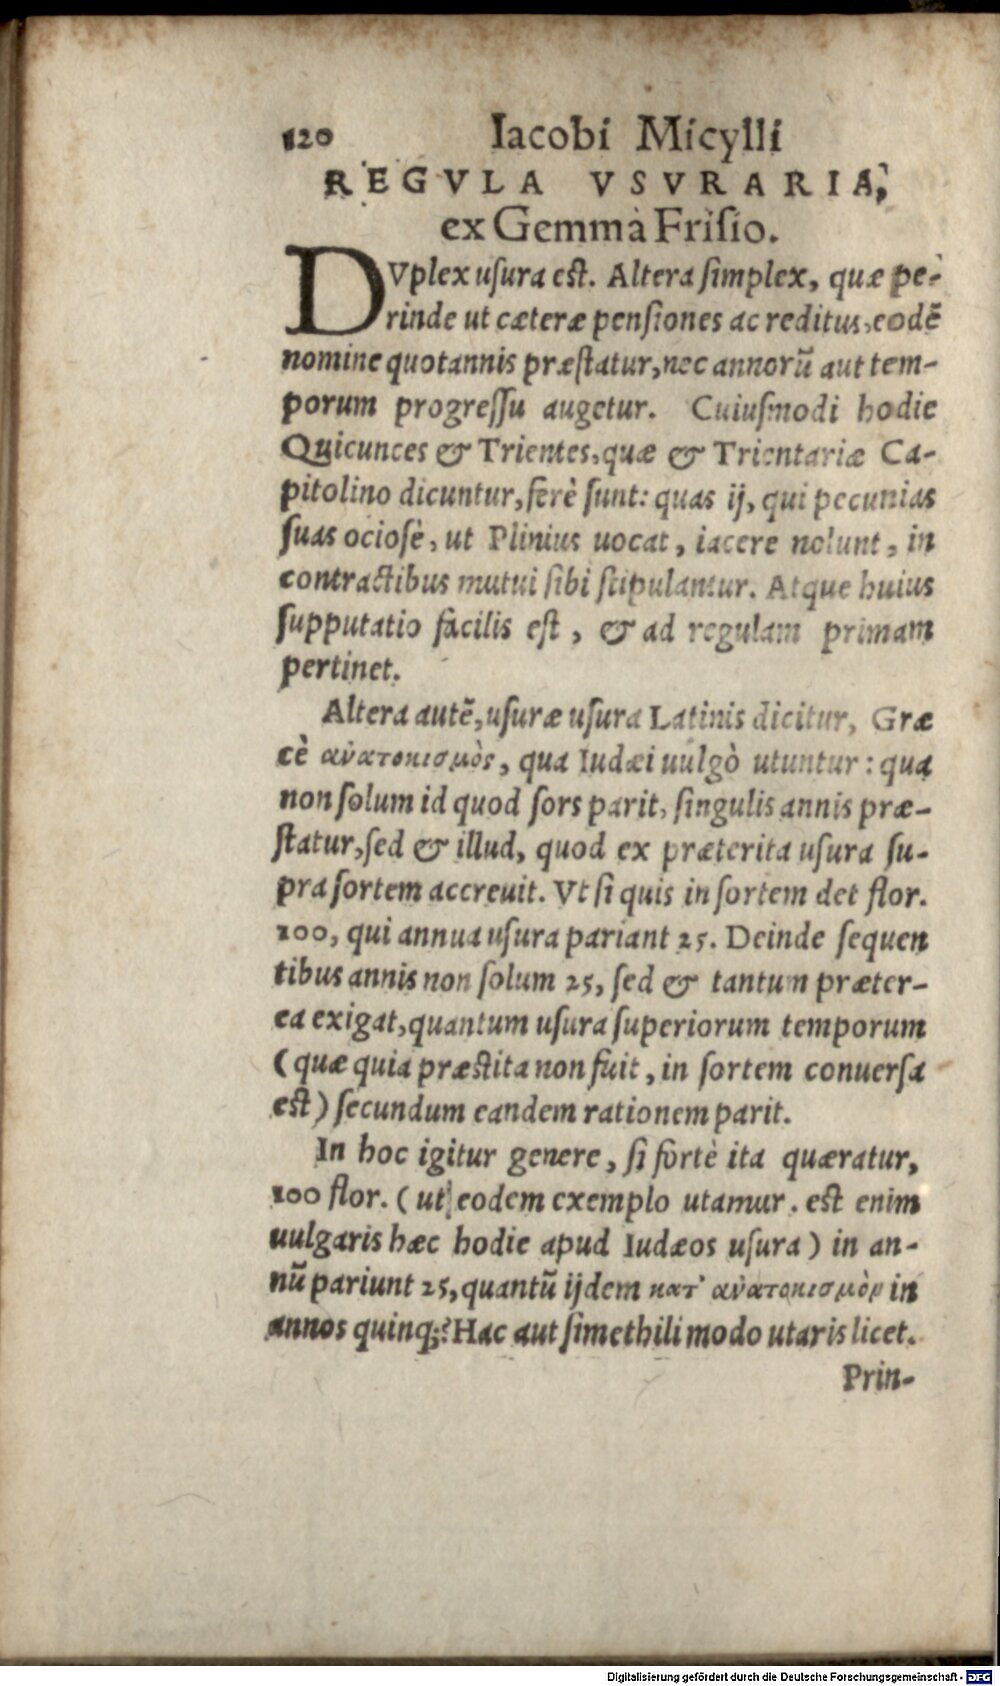 120 Iacobi Micylli
REGVLA VSVRARIA,
ex Gemma Frisio.
DVplex usura est. Altera simplex, quæ pe-
rinde ut cæteræ pensiones ac reditus, eodē
nomine quotannis præstatur, nec annorū aut tem-
porum progressu augetur. Cuiusmodi hodie
Quicunces & Trientes, quæ & Trientariæ Ca-
pitolino dicuntur, ferè sunt: quas ij, qui pecunias
suas ociosè, ut Plinius uocat, iacere nolunt, in
contractibus mutui sibi stipulantur. Atque huius
supputatio facilis est, & ad regulam primam
pertinet.
Altera autē, usuræ usura Latinis dicitur, Græ
cè ἀνατοκισμὸς, qua Iudæi uulgò utuntur: qua
non solum id quod sors parit, singulis annis præ-
statur, sed & illud, quod ex præterita usura su-
pra sortem accreuit. Vt si quis in sortem det flor.
100, qui annua usura pariant 25. Deinde sequen
tibus annis non solum 25, sed & tantum præter-
ea exigat, quantum usura superiorum temporum
(quæ quia præstita non fuit, in sortem conuersa
est) secundum eandem rationem parit.
In hoc igitur genere, si fortè ita quæratur,
100 flor. (ut eodem exemplo utamur. est enim
uulgaris hæc hodie apud Iudæos usura) in an-
nū pariunt 25, quantū ijdem κατ' ἀνατοκισμὸν in
annos quinq;? Hac aut simethili modo utaris licet.
Prin-
Digitalisierung gefördert durch die Deutsche Forschungsgemeinschaft - DFG